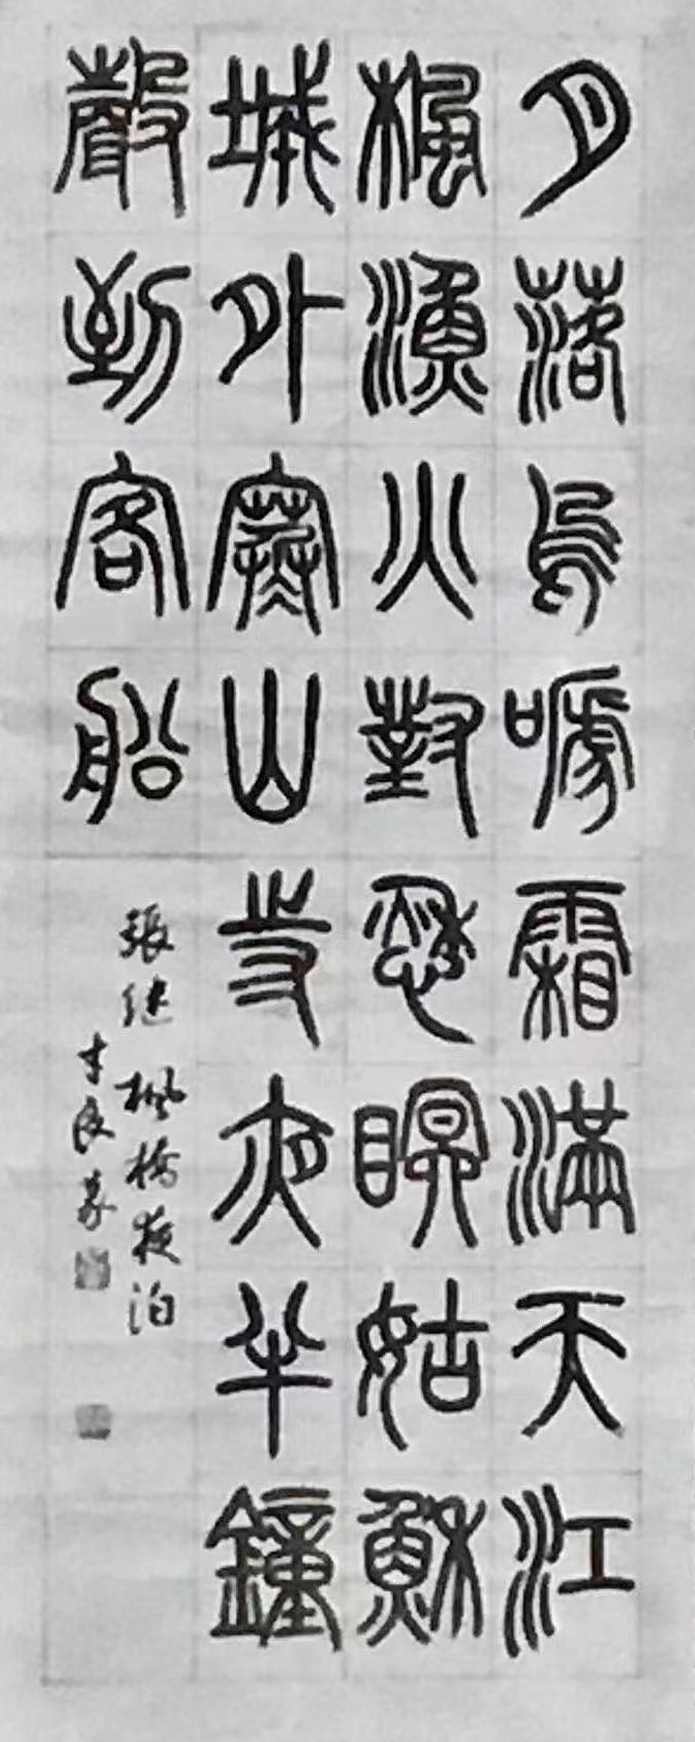 月落烏嗁霜滿天江
楓漁火對愁瞑姑穌
城外寒山寺夜半鐘
聲到客船
張继楓橋夜泊
良篆